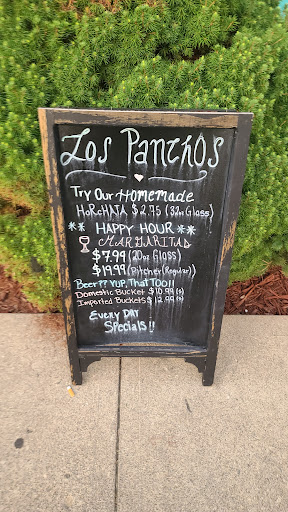 Los Panchos
Try Our Homemade
HoRcHATA $2.75 (32oz Glass)
** HAPPY HOUR **
MARGARITAS
$7.99 (20oz Glass)
$19.99 (Pitcher (Regular))
Beer?? YUP, That Too!!
Domestic Bucket $10.99
Imported Buckets $12.99
EVERY DAY
SPecials!!